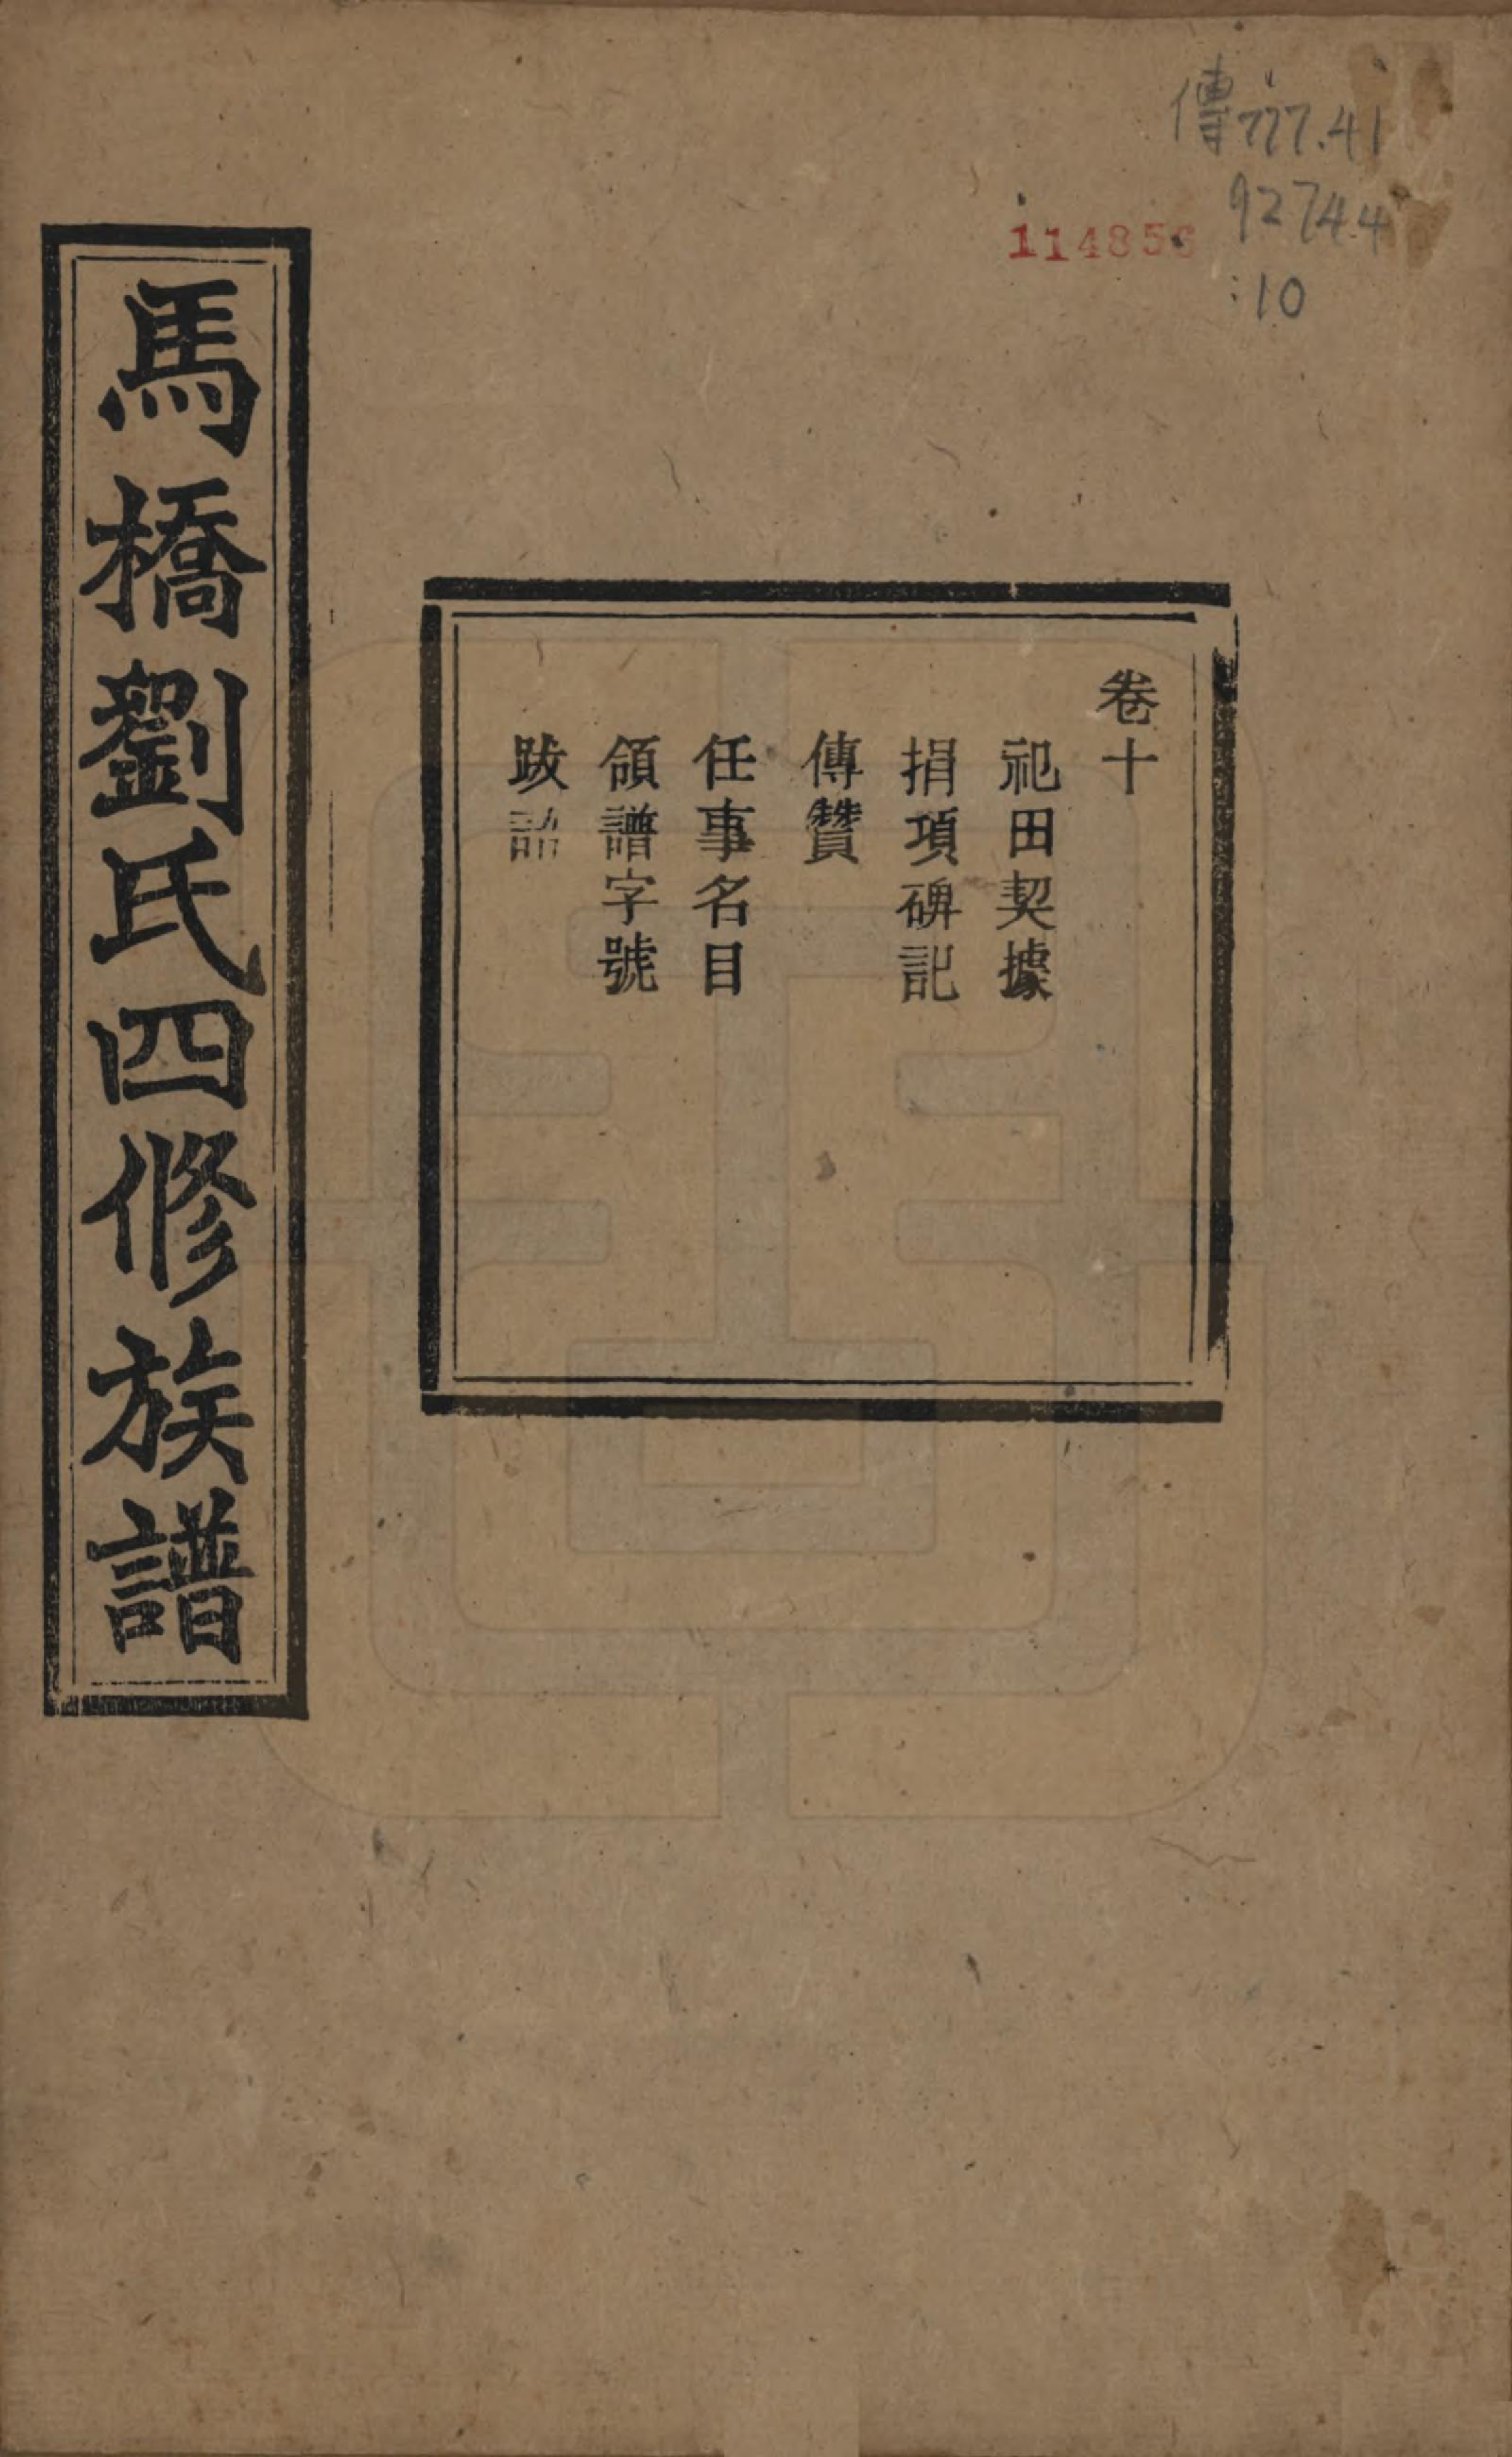 傳777.41
92744
:10
114856
卷十
祀田契據
捐項碑記
傳贊
任事名目
領譜字號
跋
馬橋劉氏四修族譜